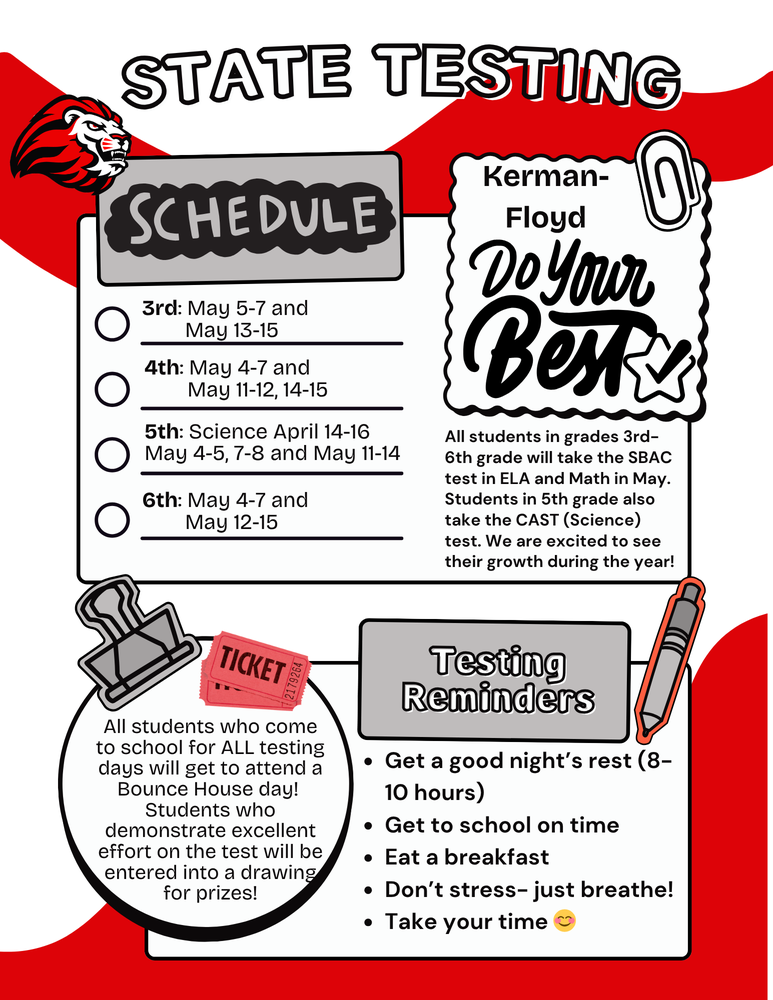 STATE TESTING
SCHEDULE
3rd: May 5-7 and
May 13-15
4th: May 4-7 and
May 11-12, 14-15
5th: Science April 14-16
May 4-5, 7-8 and May 11-14
6th: May 4-7 and
May 12-15
Kerman-
Floyd
Do Your
Best
All students in grades 3rd-
6th grade will take the SBAC
test in ELA and Math in May.
Students in 5th grade also
take the CAST (Science)
test. We are excited to see
their growth during the year!
TICKET
2179264
All students who come
to school for ALL testing
days will get to attend a
Bounce House day!
Students who
demonstrate excellent
effort on the test will be
entered into a drawing
for prizes!
Testing
Reminders
• Get a good night's rest (8-
10 hours)
• Get to school on time
• Eat a breakfast
• Don't stress- just breathe!
• Take your time 😊